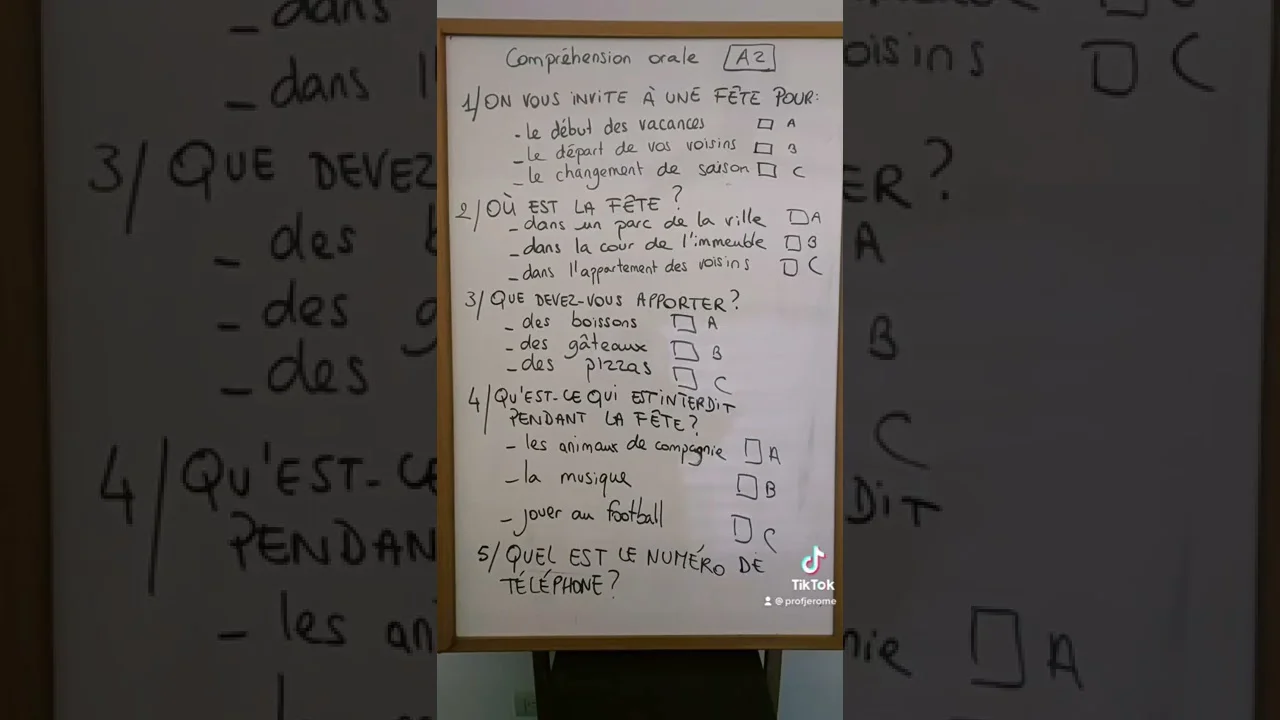 Compréhension orale A2
1/ ON VOUS INVITE À UNE FÊTE POUR:
- le début des vacances A
- le départ de vos voisins B
- le changement de saison C
2/ OÙ EST LA FÊTE ?
- dans un parc de la ville A
- dans la cour de l'immeuble B
- dans l'appartement des voisins C
3/ QUE DEVEZ-VOUS APPORTER ?
- des boissons A
- des gâteaux B
- des pizzas C
4/ QU'EST-CE QUI EST INTERDIT
PENDANT LA FÊTE ?
- les animaux de compagnie A
- la musique B
- jouer au football C
5/ QUEL EST LE NUMÉRO DE
TÉLÉPHONE ?
TikTok
@profjerome